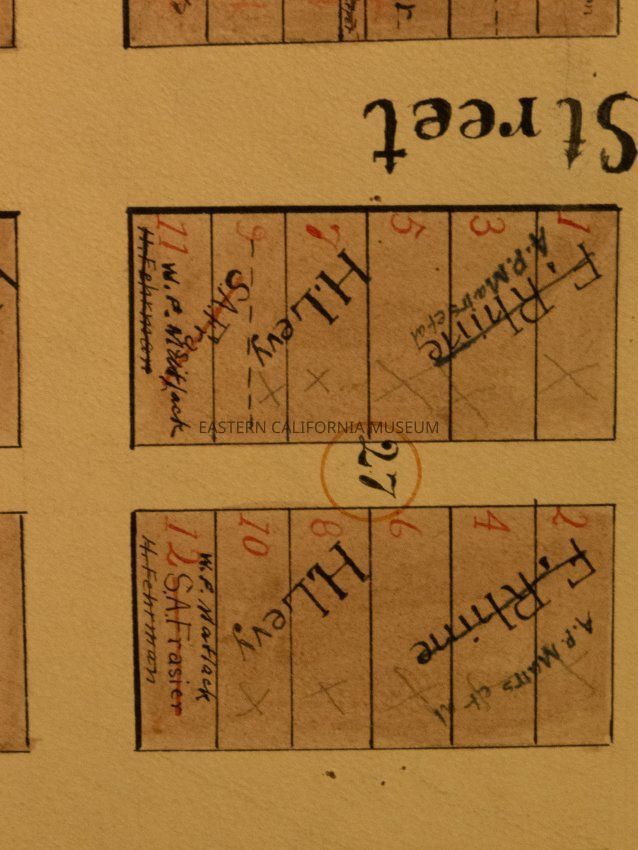 Street
1
3
5
7
9
11
F. Rhine
H. Levy
S.A.F.
W. P. Matlack
H. Fehrman
EASTERN CALIFORNIA MUSEUM
27
2
4
6
8
10
12
F. Rhine
H. Levy
W. P. Matlack
S.A. Frasier
H. Fehrman